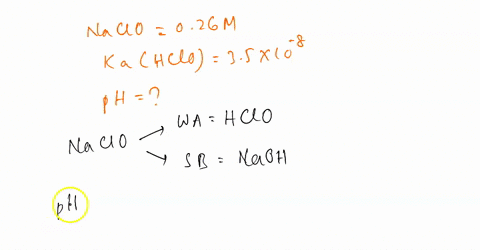 NaClO = 0.26M
Ka (HClO) = 3.5 X 10^-8
pH = ?
NaClO
WA = HClO
SB = NaOH
pH